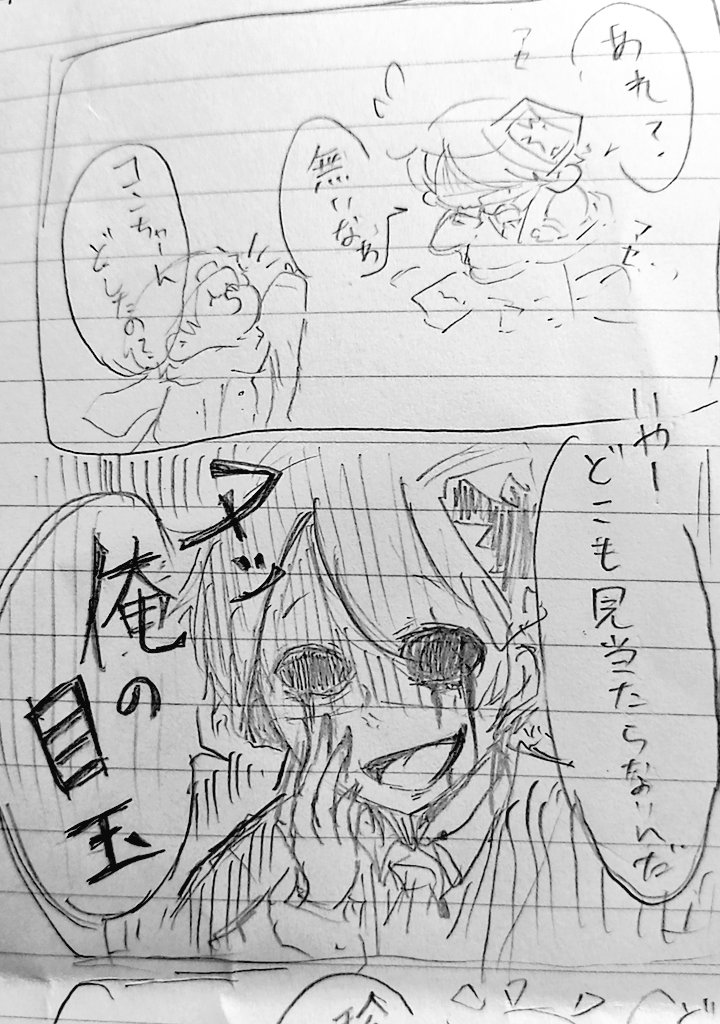 あれ?
アセ
アセ
無いなぁ
コンちゃーん
どしたの?
いやー
どこも見当たらないんだ
ヌッ
俺の
目玉